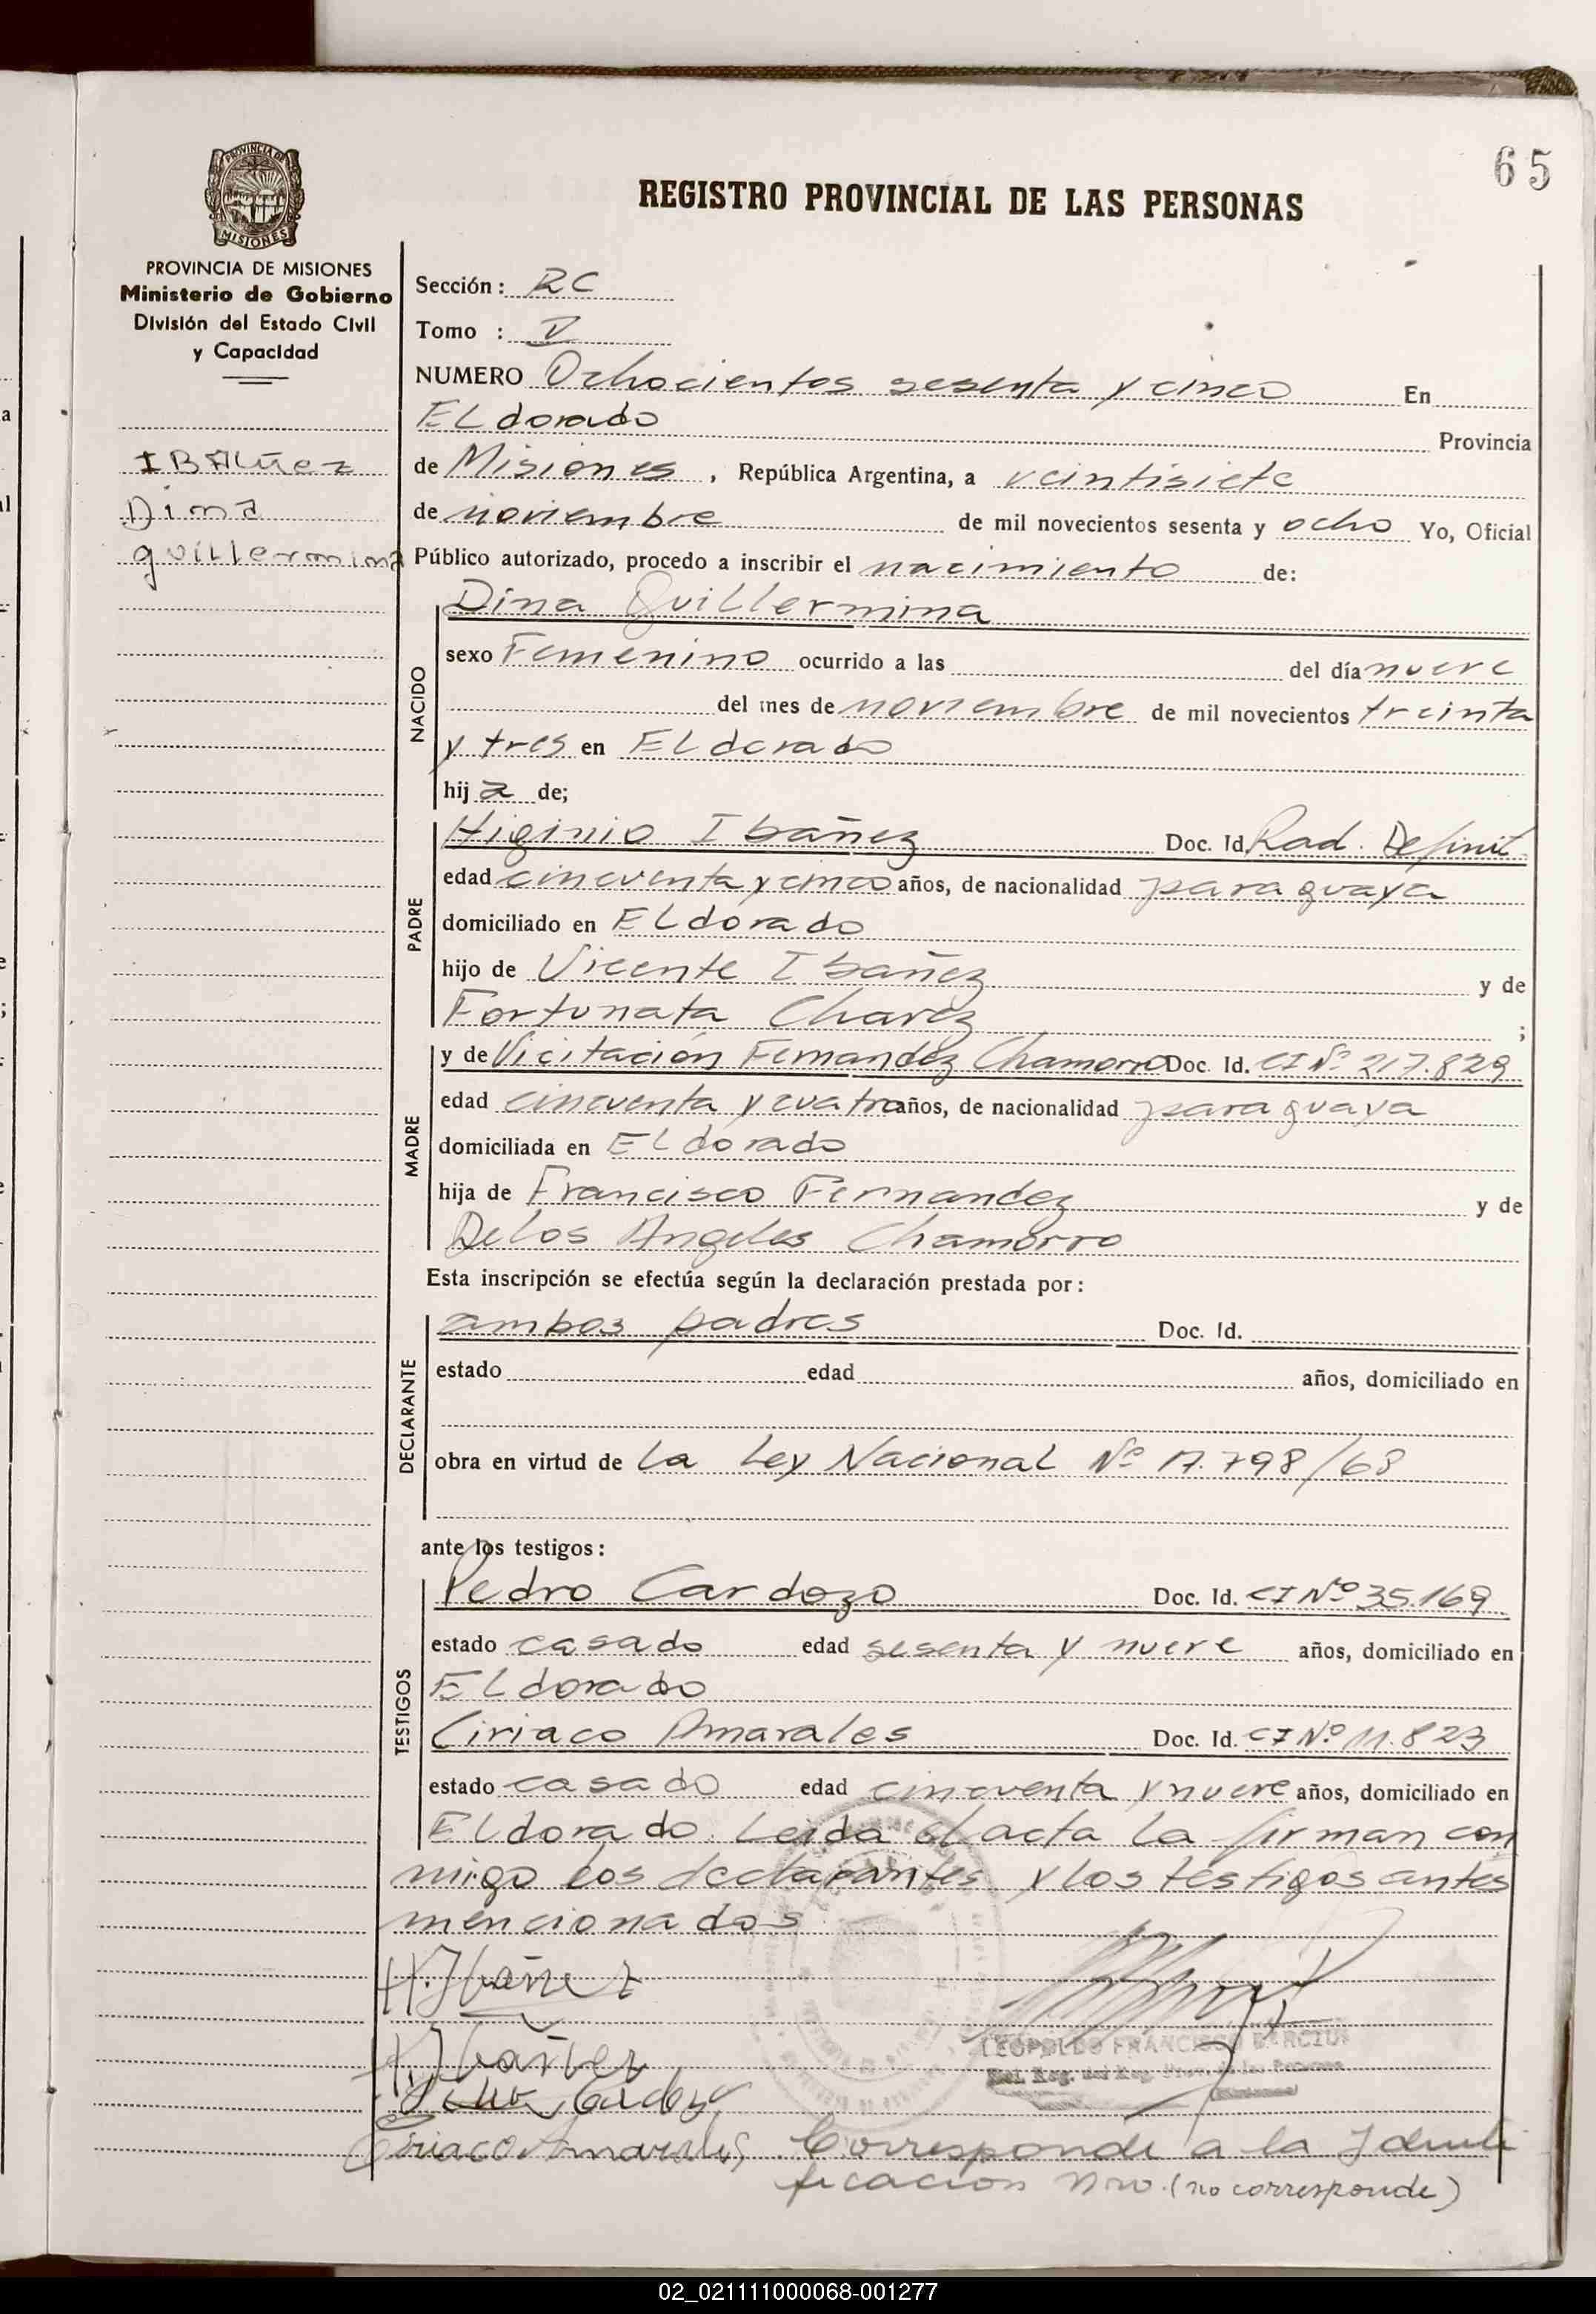 65
REGISTRO PROVINCIAL DE LAS PERSONAS
PROVINCIA DE
MISIONES
PROVINCIA DE MISIONES
Ministerio de Gobierno
División del Estado Civil
y Capacidad
IBAÑez
Dina
guillermina
Sección: RC
Tomo : V
NUMERO Ochocientos sesenta y cinco En
ELdorado Provincia
de Misiones, República Argentina, a veintisiete
de noviembre de mil novecientos sesenta y ocho Yo, Oficial
Público autorizado, procedo a inscribir el nacimiento de:
NACIDO
Dina Guillermina
sexo Femenino ocurrido a las del día nueve
del mes de noviembre de mil novecientos treinta
y tres en ELdorado
hij a de;
PADRE
Higinio Ibañez Doc. Id. Rad. Definit.
edad cincuenta y cinco años, de nacionalidad paraguaya
domiciliado en ELdorado
hijo de Vicente Ibañez y de
Fortunata Chavez ;
MADRE
y de Vicitación Fernandez Chamorro Doc. Id. CI Nº 217.829
edad cincuenta y cuatro años, de nacionalidad paraguaya
domiciliada en ELdorado
hija de Francisco Fernandez y de
De los Angeles Chamorro
Esta inscripción se efectúa según la declaración prestada por:
DECLARANTE
ambos padres Doc. Id.
estado edad años, domiciliado en
obra en virtud de La Ley Nacional Nº 17.798/68
ante los testigos:
TESTIGOS
Pedro Cardozo Doc. Id. CI Nº 35.169
estado casado edad sesenta y nueve años, domiciliado en
ELdorado
Ciriaco Amarales Doc. Id. CI Nº 11.823
estado casado edad cincuenta y nueve años, domiciliado en
ELdorado. Leida el acta la firman con
migo los declarantes y los testigos antes
mencionados
H. Ibañez
H. Ibañez
LEOPOLDO FRANCISCO
Ciriaco Amarales
Corresponde a la Identi
ficacion Nro. (no corresponde)
02_021111000068-001277